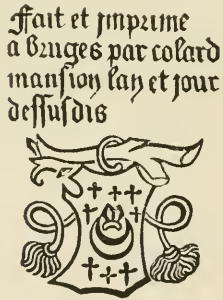 Fait et jmprime
a Bruges par colard
mansion lan et jour
dessusdis